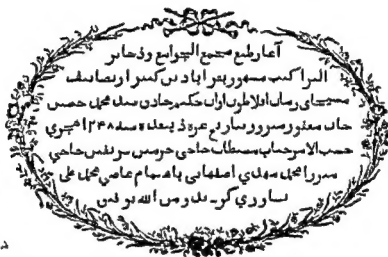 آغاز طبع مجمع الجوامع و ذخائر
التراکیب مشهور بقرابادین کبیر از تصانیف
مسیحای زمان افلاطون اوان حکیم حاذق سید محمد حسین
خان مغفور مبرور بتاریخ غره ذیقعده سنه ۱۲۴۸ هجری
حسب الامر جناب مستطاب حاجی حرمین شریفین حاجی
میرزا محمد مهدی اصفهانی باهتمام قاضی محمد علی
ساروی من الله توفیق